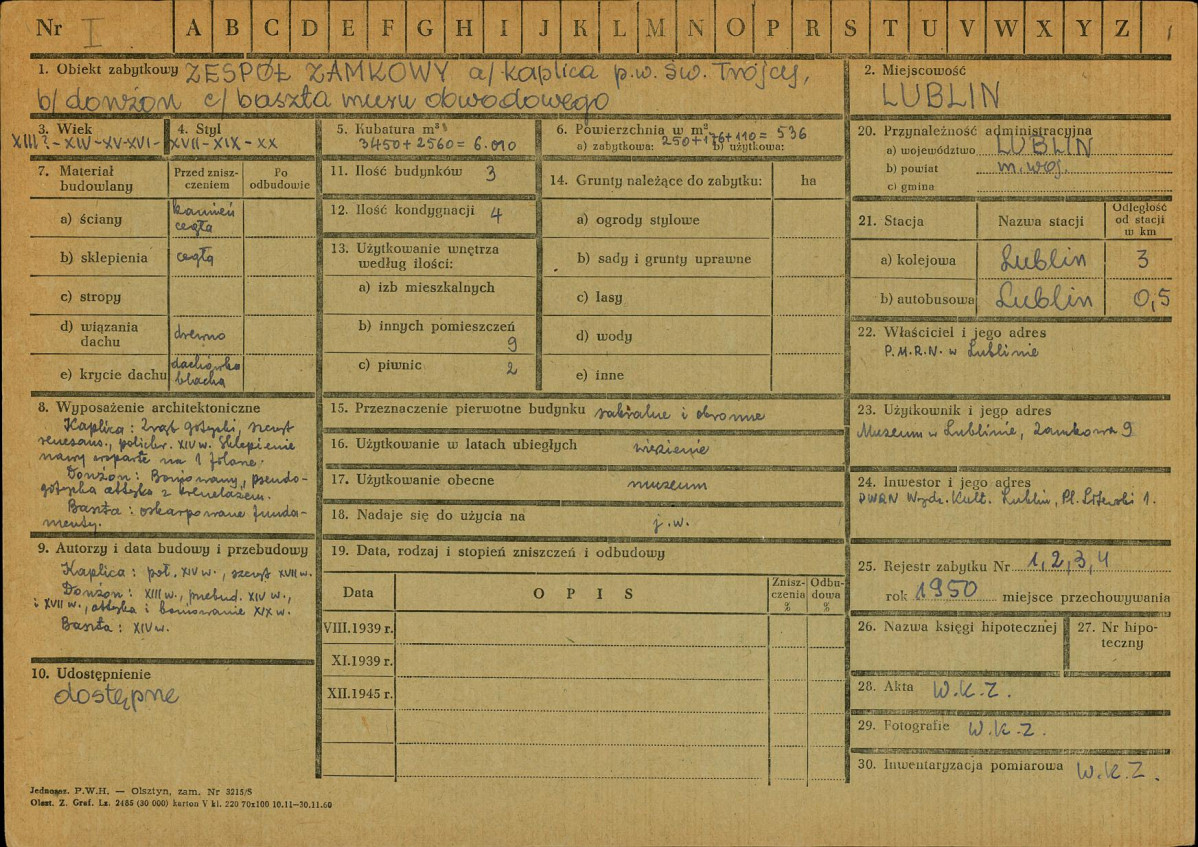 Nr I A B C D E F G H I J K L M N O P R S T U V W X Y Z 1
1. Obiekt zabytkowy ZESPÓŁ ZAMKOWY a/ kaplica p.w. Św. Trójcy,
b/ donżon c/ baszta muru obwodowego
2. Miejscowość
LUBLIN
3. Wiek 4. Styl
XIII?-XIV-XV-XVI-XVII-XIX-XX
5. Kubatura m³
3450+2560=6.010
6. Powierzchnia w m²
a) zabytkowa: 250+176+110=536 b) użytkowa:
7. Materiał budowlany
Przed zniszczeniem
Po odbudowie
a) ściany kamień cegła
b) sklepienia cegła
c) stropy
d) wiązania dachu drewno
e) krycie dachu dachówka blacha
8. Wyposażenie architektoniczne
Kaplica: Zrąb gotycki, szczyt
renesans., polichr. XIV w. Sklepienie
nawy wsparte na 1 folarze.
Donżon: Boniowany, pseudo-
gotycka attyka z krenelażem.
Baszta: oskarpowane funda-
menty.
9. Autorzy i data budowy i przebudowy
Kaplica: poł. XIV w., szczyt XVII w.
Donżon: XIII w., przebud. XIV w.,
i XVII w., attyka i boniowanie XIX w.
Baszta: XIV w.
10. Udostępnienie
dostępne
11. Ilość budynków 3
12. Ilość kondygnacji 4
13. Użytkowanie wnętrza
według ilości:
a) izb mieszkalnych
b) innych pomieszczeń
9
c) piwnic 2
14. Grunty należące do zabytku: ha
a) ogrody stylowe
b) sady i grunty uprawne
c) lasy
d) wody
e) inne
15. Przeznaczenie pierwotne budynku sakralne i obronne
16. Użytkowanie w latach ubiegłych więzienie
17. Użytkowanie obecne muzeum
18. Nadaje się do użycia na j.w.
19. Data, rodzaj i stopień zniszczeń i odbudowy
Data OPIS Zniszczenia % Odbudowa %
VIII.1939 r.
XI.1939 r.
XII.1945 r.
20. Przynależność administracyjna
a) województwo LUBLIN
b) powiat m. woj.
c) gmina
21. Stacja Nazwa stacji Odległość od stacji w km
a) kolejowa Lublin 3
b) autobusowa Lublin 0,5
22. Właściciel i jego adres
P.M.R.N. w Lublinie
23. Użytkownik i jego adres
Muzeum w Lublinie, Zamkowa 9
24. Inwestor i jego adres
PWRN Wydz. Kult. Lublin, Pl. 1.
25. Rejestr zabytku Nr 1,2,3,4
rok 1950 miejsce przechowywania
26. Nazwa księgi hipotecznej
27. Nr hipo-
teczny
28. Akta W.K.Z.
29. Fotografie W.K.Z.
30. Inwentaryzacja pomiarowa W.K.Z.
Jednogz. P.W.H. — Olsztyn, zam. Nr 3215/5
Olszt. Z. Graf. Lz. 2485 (30 000) karton V kl. 220 70x100 10.11—30.11.60